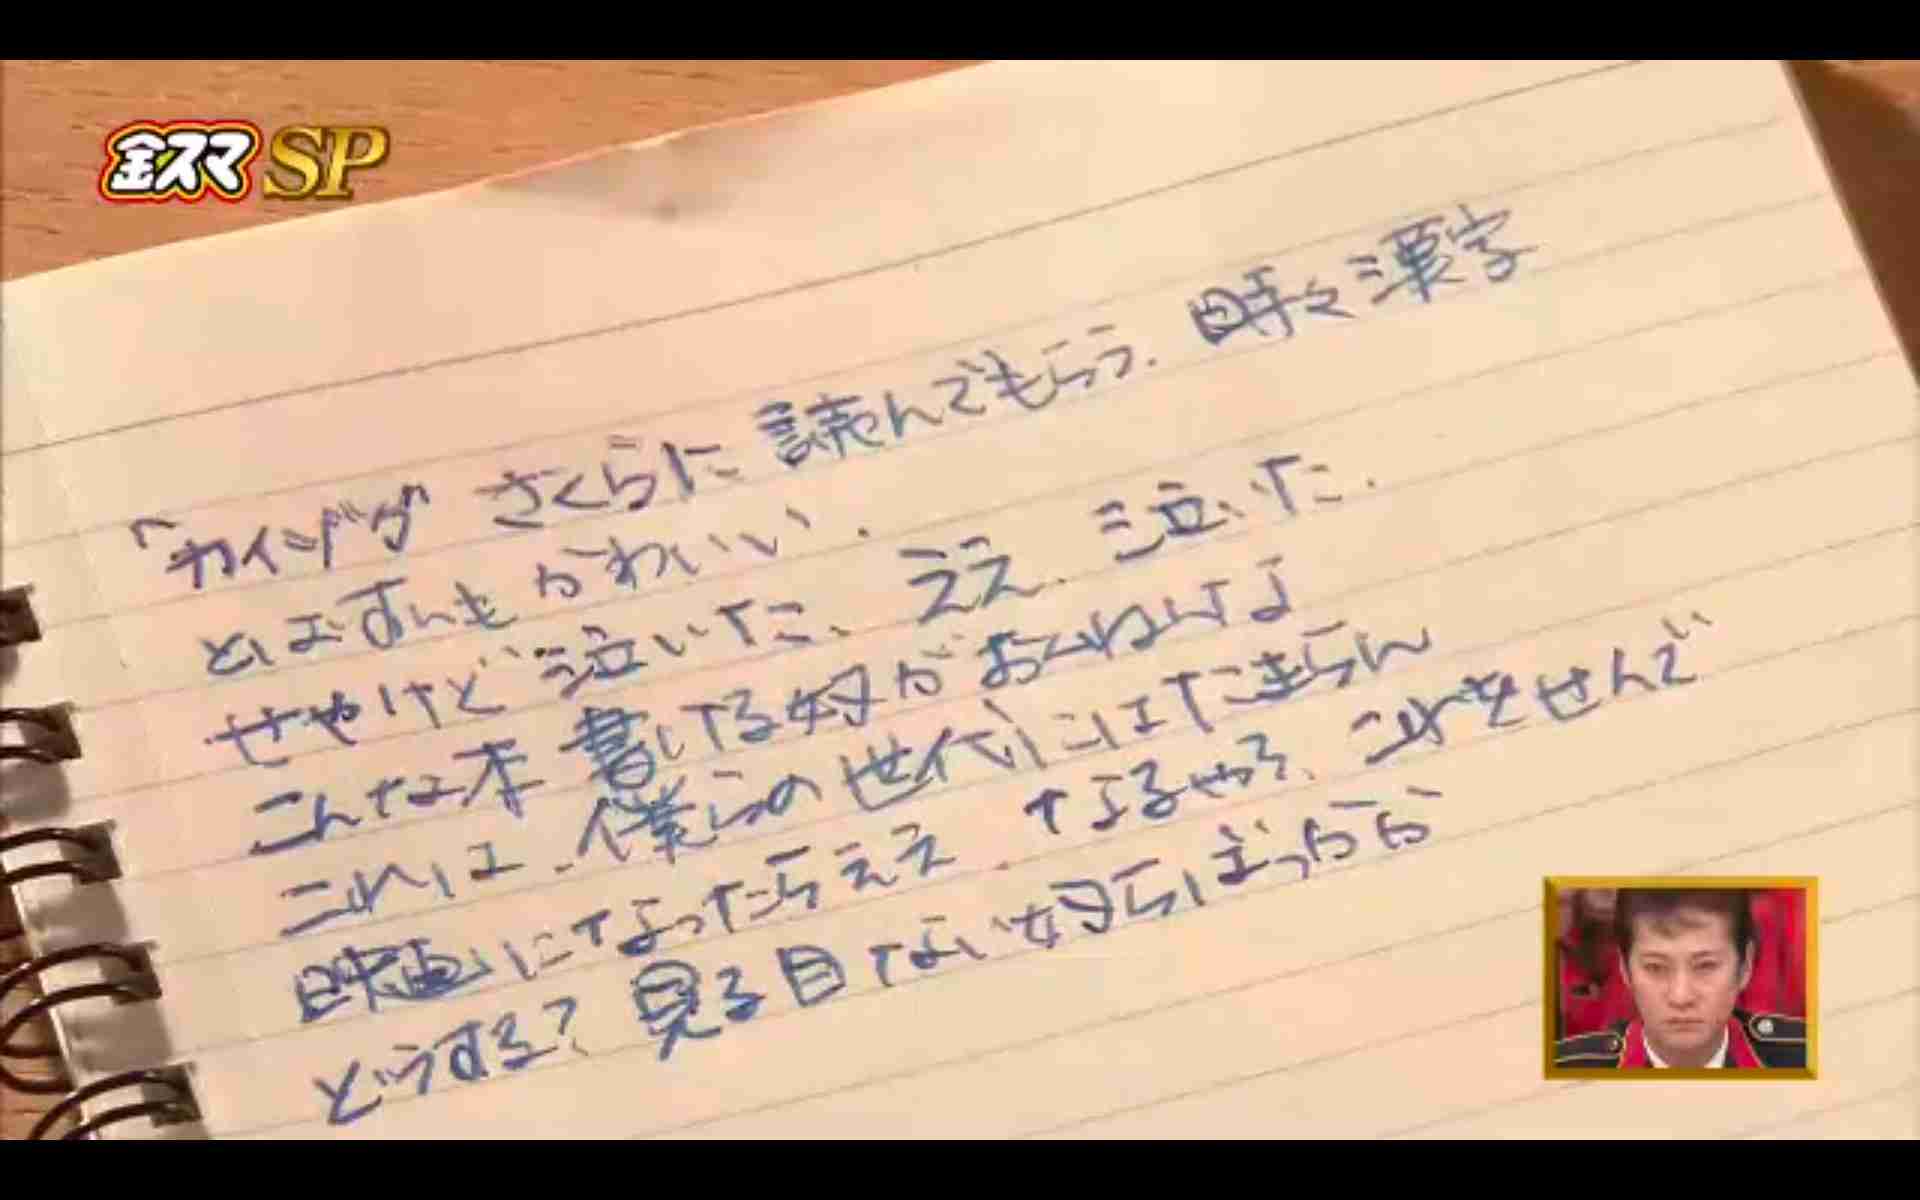 金スマSP
"カイジダ" さくらに読んでもらう. 時々漢字
とばすんもかわいい.
せやけど泣いた、ええ、泣いた.
こんな本書ける奴がおんねんなよ
これは、僕らの世代にはたまらん
映画になったらええ なるやろ、これをせんで
どうする? 見る目ない奴らばっかか